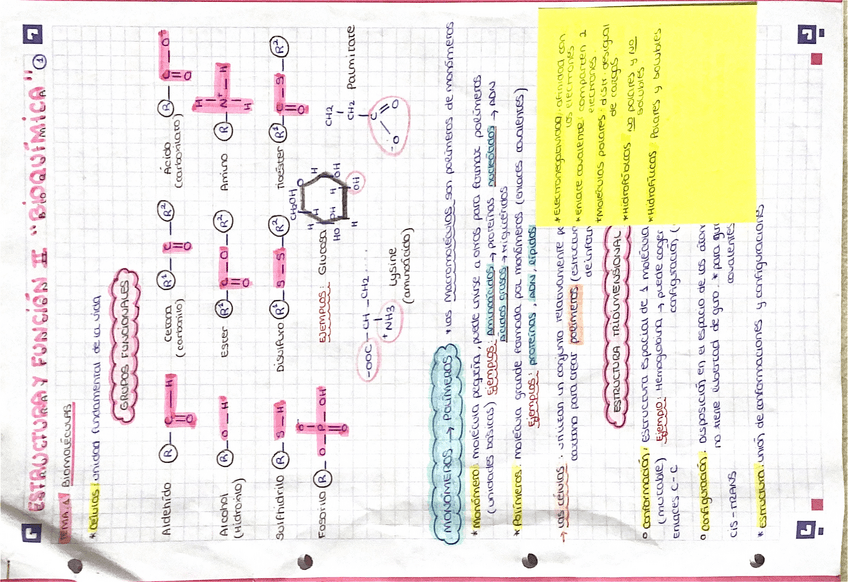 ESTRUCTURA Y FUNCIÓN II "BIOQUÍMICA" 1
TEMA 1: BIOMOLÉCULAS
* Células: unidad fundamental de la vida
GRUPOS FUNCIONALES
Aldehído
R — C — H
O
Cetona (carbonilo)
R¹ — C — R²
O
Ácido (carboxilato)
R — C — O⁻
O
Alcohol (Hidroxilo)
R — O — H
Ester
R¹ — C — O — R²
O
Amino
R — N⁺ — H
H
H
Sulfhidrilo
R — S — H
Disulfuro
R¹ — S — S — R²
Tioéster
R¹ — C — S — R²
O
Fosforilo
R — O — P — OH
O
EJEMPLOS:
Glucosa
CH₂OH
Palmitate
CH₂
CH₂
C
O
-O
-OOC — CH — CH₂ ....
+NH3
Lysine
(aminoácido)
MONÓMEROS → POLÍMEROS
* Las Macromoléculas son polímeros de monómeros
* Monómero: molécula pequña, puede unirse a otras para formar polímeros
(unidades básicas) Ejemplos: Aminoácidos → proteínas nucleótidos → ADN
ácidos grasos → triglicéridos
* Polímeros: molécula grande formada por monómeros (enlaces covalentes)
Ejemplos: proteínas, ADN, lípidos
→ Las células: utilizan un conjunto relativamente p
carbono para crear polímeros (estructur
de infor
* Electronegatividad: afinidad con
los electrones
* Enlace covalente: comparten 2
electrones
* Moléculas polares: distr. desigual
de cargas
* Hidrofóbicos: no polares y no
solubles
* Hidrofílicas: Polares y solubles
ESTRUCTURA TRIDIMENSIONAL
° Conformación: estructura espacial de 1 molécula
(mutable) Ejemplo: Hemoglobina → puede coger
Enlaces C-C configuración, (
° Configuración: disposición en el espacio de los átom
no tiene libertad de giro. * para gir
CIS-TRANS covalentes
* Estructura: unión de conformaciones y configuraciones